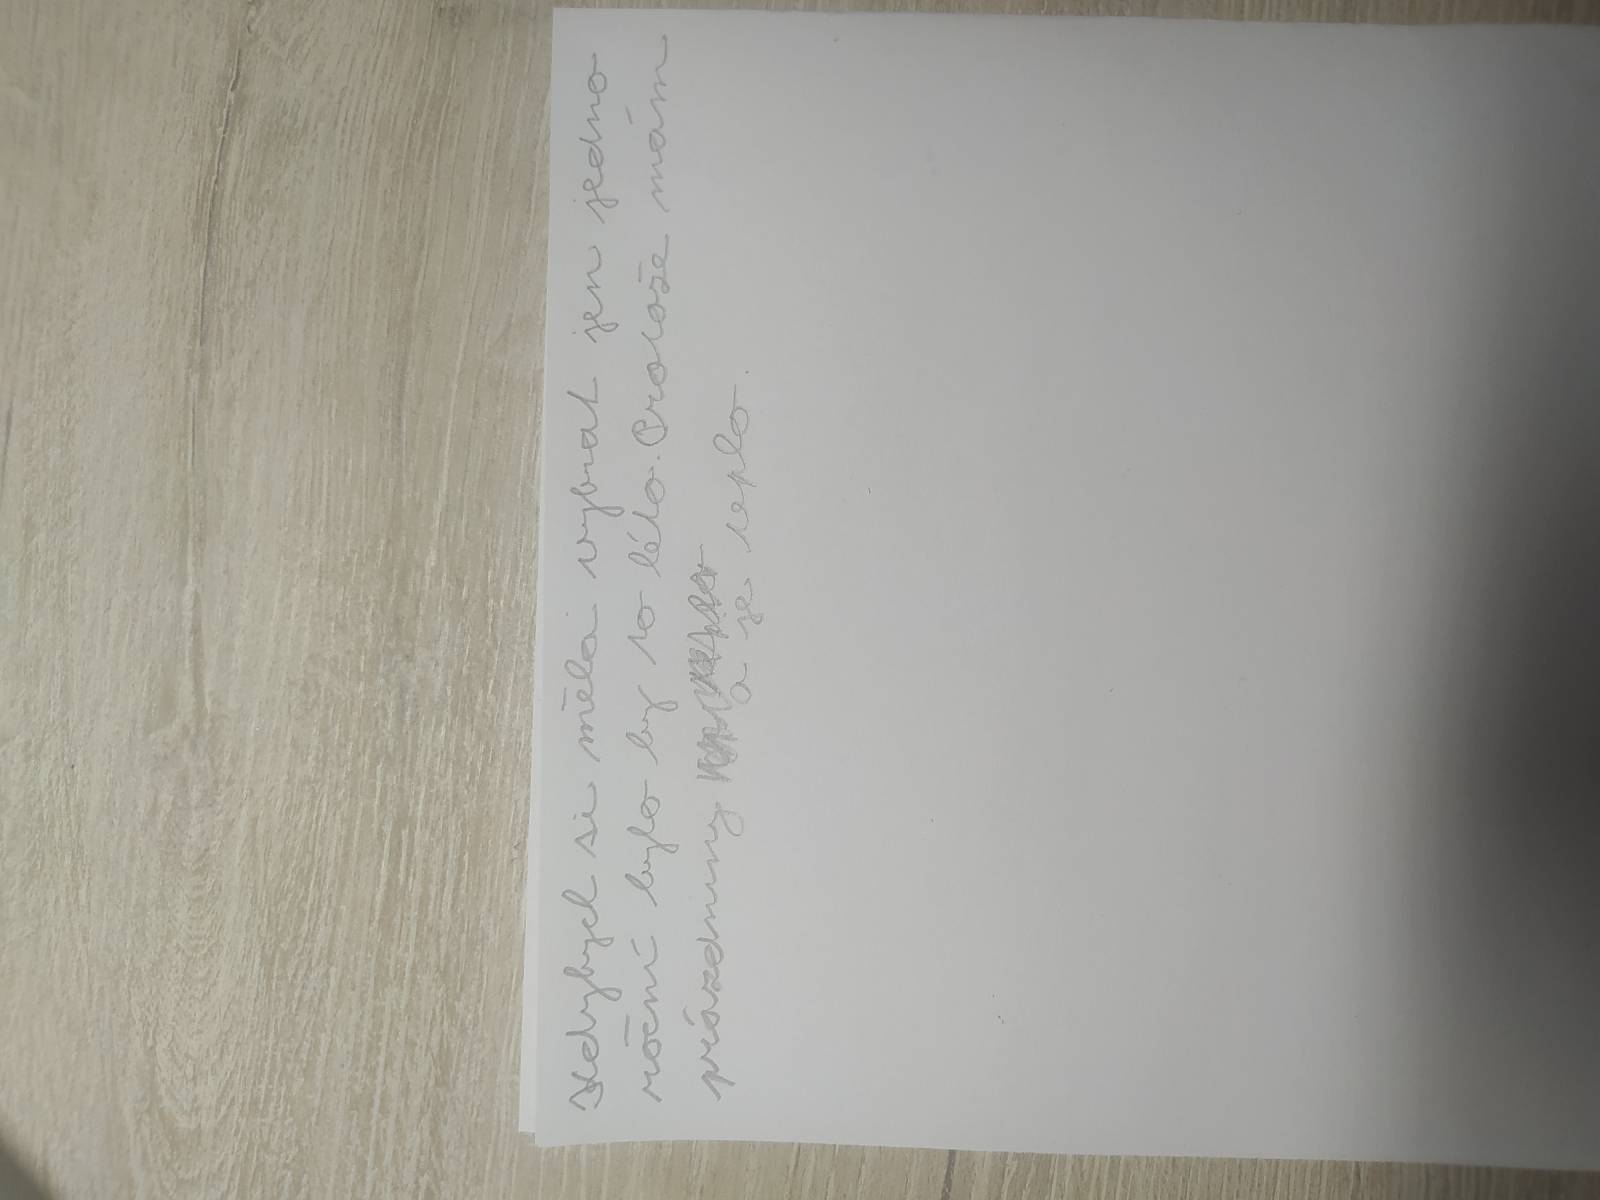 Kdybych si měla vybrat jen jedno
roční bylo by to léto. Protože mám
prázdniny
a je teplo.